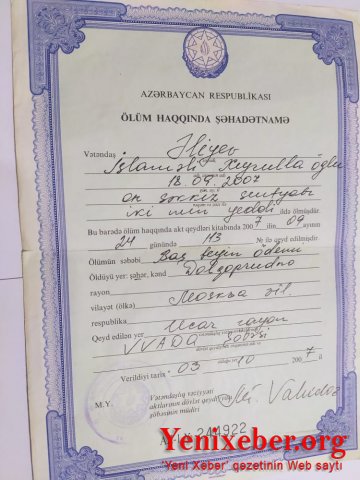 AZƏRBAYCAN RESPUBLİKASI
ÖLÜM HAQQINDA ŞƏHADƏTNAMƏ
Vətəndaş Əliyev
İslaməli Xeyrulla oğlu
18.09.2007
on səkkiz sentyabr
iki min yeddi ildə ölmüşdür.
Bu barədə ölüm haqqında akt qeydləri kitabında 2007 ilin 09 ayının
24 günündə 113 № ilə qeyd edilmişdir
Ölümün səbəbi Baş beyin ödemi
Öldüyü yer: şəhər, kənd Dolqoprudno
rayon
vilayət (ölkə) Москва vil.
respublika
Qeyd edilən yer Ucar rayon
VVADQ Şöbəsi
Verildiyi tarix 03 10 2007 il
Vətəndaşlıq vəziyyəti
M.Y. aktlarının dövlət qeydiyyatı
şöbəsinin müdiri
241922
Yenixeber.org
"Yeni Xeber" qezetinin Web saytı